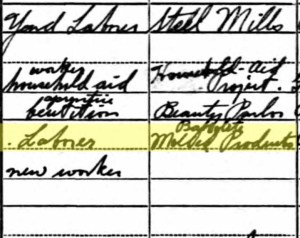 Yard Laborer Steel Mills
worker
household aid Household Aid
Project
apprentice
beautition Beauty Parlor
Laborer Bakelite
Molded Products
new worker